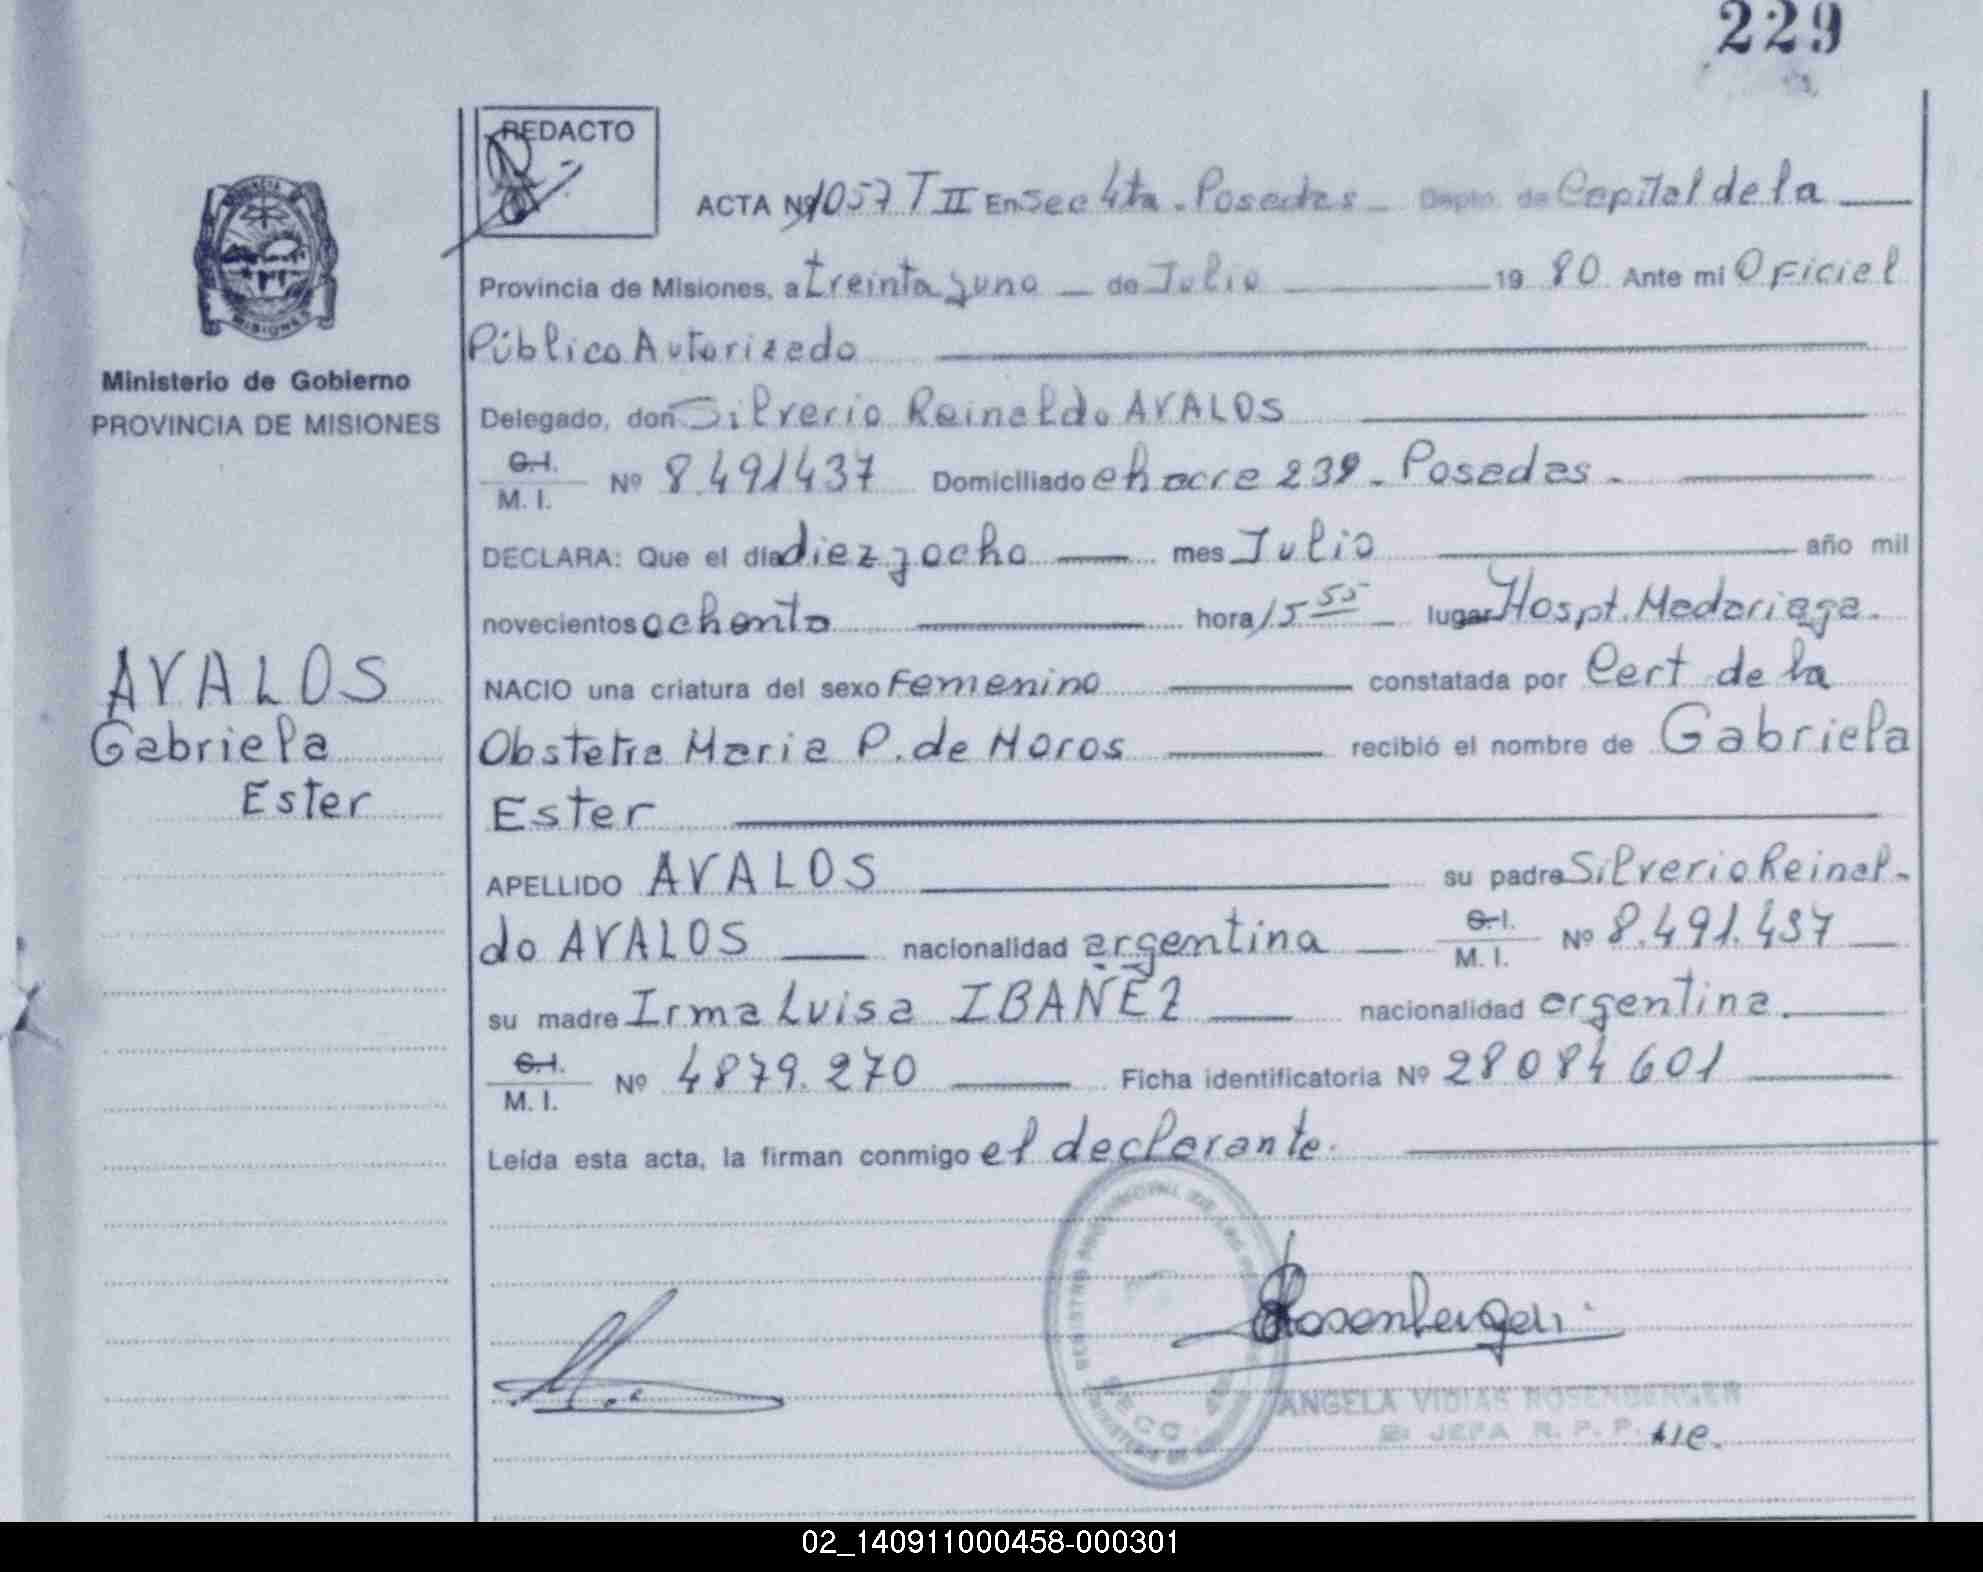 229
REDACTO
ACTA Nº 1057 T II En Sec 4ta. Posadas Depto. de Capital de la
Provincia de Misiones, a treinta y uno de Julio 19 80 Ante mi Oficial
Público Autorizado
Delegado, don Silverio Reinaldo AVALOS
C.I.
M. I. Nº 8.491437 Domiciliado chacra 239 - Posadas.
DECLARA: Que el día diez y ocho mes Julio año mil
novecientos ochenta hora 15 55 lugar Hospt. Madariaga.
NACIO una criatura del sexo Femenino constatada por Cert de la
Obstetra Maria P. de Moros recibió el nombre de Gabriela
Ester
APELLIDO AVALOS su padre Silverio Reinal-
do AVALOS nacionalidad argentina C.I.
M. I. Nº 8.491.437
su madre Irma Luisa IBAÑEZ nacionalidad argentina.
C.I.
M. I. Nº 4879.270 Ficha identificatoria Nº 28084601
Leída esta acta, la firman conmigo el declarante.
Rosenberger
ANGELA VIDIAS ROSENBERGER
JEFA R. P. P.
PROVINCIA DE
MISIONES
Ministerio de Gobierno
PROVINCIA DE MISIONES
AVALOS
Gabriela
Ester
02_140911000458-000301